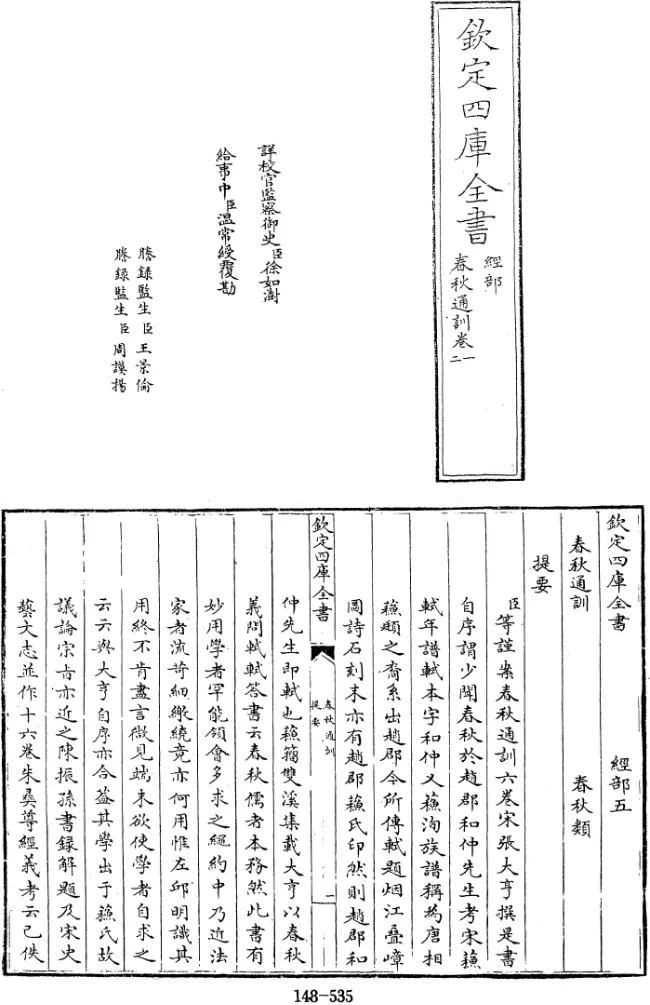 欽定四庫全書
經部
春秋通訓卷一
二
詳校官監察御史臣徐如澍
給事中臣溫常綬覆勘
謄錄監生臣王景倫
謄錄監生臣周謨揚
欽定四庫全書 經部五
春秋通訓 春秋類
提要
臣等謹案春秋通訓六卷宋張大亨撰是書
自序謂少聞春秋於趙郡和仲先生考宋蘓
軾年譜軾本字和仲又蘓洵族譜稱為唐相
蘓頲之裔系出趙郡今所傳軾題烟江叠嶂
圖詩石刻末亦有趙郡蘓氏印然則趙郡和
欽定四庫全書
春秋通訓
提要
一
仲先生即軾也蘓籀雙溪集載大亨以春秋
義問軾軾答書云春秋儒者本務然此書有
妙用學者罕能領會多求之繩約中乃近法
家者流苛細繳繞竟亦何用惟左邱明識其
用終不肯盡言微見端末欲使學者自求之
云云與大亨自序亦合葢其學出于蘓氏故
議論宗㫖亦近之陳振孫書録解題及宋史
藝文志並作十六卷朱彞尊經義考云已佚
148-535